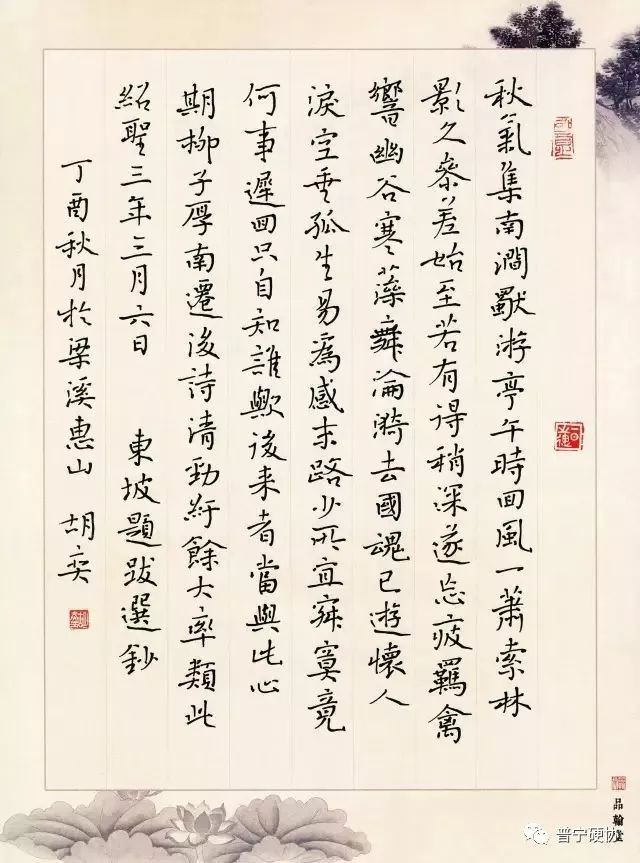 秋氣集南澗獸游亭午時回風一蕭索林
影久參差始至若有得稍深遂忘疲羈禽
響幽谷寒藻舞淪漪去國魂已遊懷人
淚空垂孤生易爲感末路少所宜寂寞竟
何事遲回只自知誰歟後来者當與此心
期柳子厚南遷後詩清勁紆餘大率類此
紹聖三年三月六日 東坡題跋選鈔
丁酉秋月於梁溪惠山 胡奕
品翰堂
普宁硬协